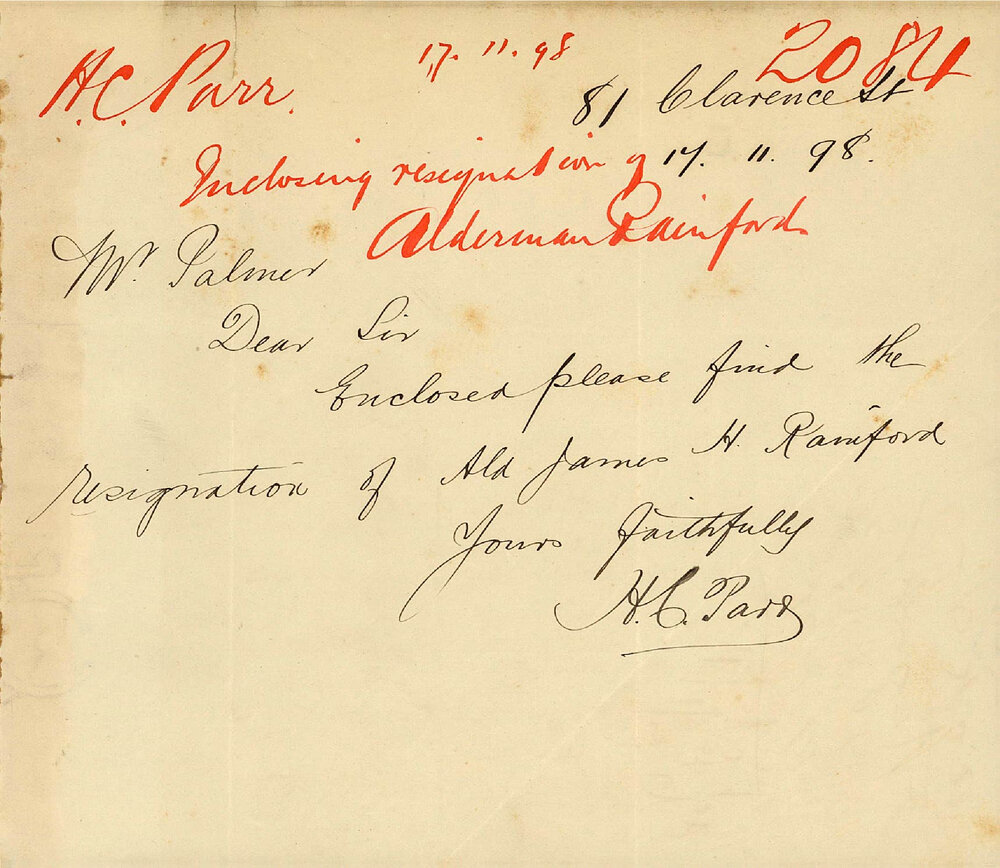 H.C. Parr. 17.11.98 2084
81 Clarence St
Inclosing resignation of 17. 11. 98.
Alderman Rainford
Mr. Palmer
Dear Sir
Enclosed please find the
resignation of Ald James H. Rainford
Yours faithfully
H.C. Parr